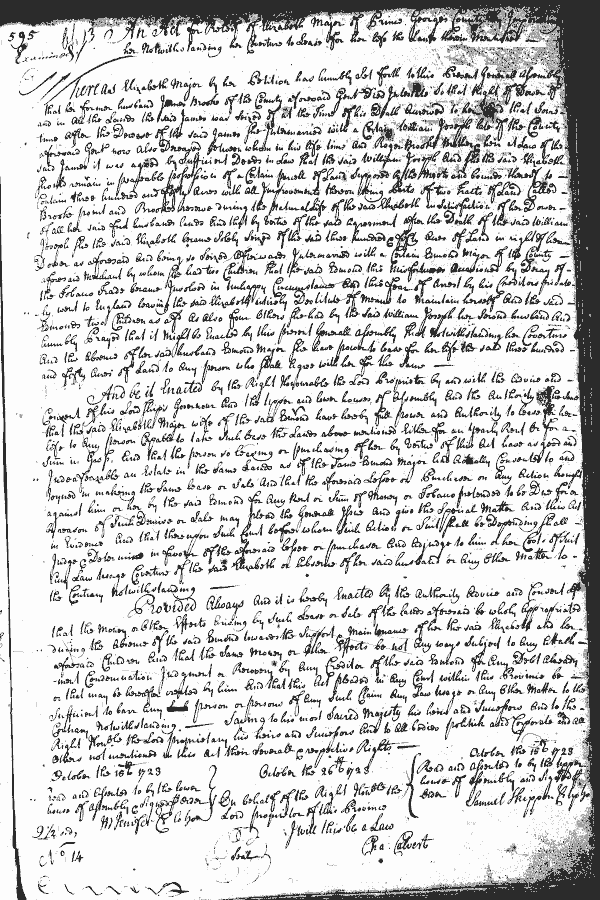 595
N° 13 An Act for Relief of Elizabeth Major of Prince Georges County
Examined
her Notwithstanding her Coverture to Lease for her life the Lands therein Mentioned
Whereas Elizabeth Major by her Petition has humbly Set forth to this Present Generall Assembly
that her former husband James Brooke of the County aforesaid Gent died Intestate So that Right of Dower
and in All the Landes the said James was Seized of at the time of his Death Accrued to her And that Some
time After the Decease of the said James She Intermarried with a Certain William Joseph late of the County
aforesaid Gent now Also Deceased Between whom in his life time And Roger Brooke heir at Law of the
said James it was agreed by Sufficient Deeds in Law that the said William Joseph And She the said Elizabeth
should remain in peaceable possession of a Certain parcell of Land Supposed by the Meets and bounds thereof to
Contain three hundred and fifty Acres with all Improvements thereon being parts of two Tracts of Land Called
Brooke point and Brookes reserve during the Naturall life of the said Elizabeth in Satisfaction of her Dower
of all her said first husbands lands And that by Vertue of the said Agreement After the Death of the said William
Joseph She the said Elizabeth became Solely Seized of the said three hundred & fifty Acres of Land in right of her
Dower as aforesaid And being so Seized Afterwards Intermarried with a Certain Edmond Major of the County
aforesaid Merchant by whom She had two Children that the said Edmond thro Misfortunes Occasioned by Decay of
the Tobacco Trade became Involved in Unhappy Circumstances And thro fear of Arrest by his Creditors private
ly went to England leaving the said Elizabeth intirely Destitute of Means to Maintain herself And the said
Edmonds two Children as aforesd As Also four Others She had by the said William Joseph her Second husband And
humbly Prayed that it Might be Enacted by this present Generall Assembly that Notwithstanding her Coverture
And the Absence of her said husband Edmond Major She have power to lease for her life the said three hundred
and fifty Acres of land to any person who shall Agree with her for the Same
And be it Enacted by the Right Honourable the Lord Proprietor by and with the Advice and
Consent of his Lordships Governour And the Upper and lower houses of Assembly And the Authority of the same
that the said Elizabeth Major wife of the said Edmond have hereby full power and Authority to lease for her
life to any person Capable to take Such lease the Lands above mentioned Either for an Yearly Rent or for a
Sum in Gross And that the person so leasing or purchasing of her by Vertue of this Act have as good and
Indefeazable an Estate in the Same Landes as if the Said Edmond Major had Actually Consented to and
Joyned in making the Same lease or Sale And that the aforesaid Lessee or Purchaser on Any Action brought
against him or her by the said Edmond for Any Rent or Sum of Money or Tobacco pretended to be Due for or
by reason of Such Demise or Sale may plead the Generall Issue And give the Speciall Matter And this Act
in Evidence And that thereupon Such Court before whom Such Action or Suit shall be depending shall
Judge & Determine in favour of the aforesaid lessee or purchaser And adjudge to him or her Costs of Suit
Any Law Usage Coverture of the said Elizabeth or Absence of her said husband or Any Other Matter to
the Contrary Notwithstanding
Provided Always And it is hereby Enacted by the Authority Advice and Consent aforesd
that the Money or Other Effects Ensuing by Such Lease or Sale of the lands aforesaid be wholy Appropriated
during the Absence of the said Edmond towards the Support & Maintenance of her the said Elizabeth and her
aforesaid Children And that the Same Money or Other Effects be not Any ways Subject to Any Attach
ment Condemnation Judgment or Recovery by Any Creditor of the said Edmond for Any Debt Already
or that may be hereafter created by him And that this Act pleaded in Any Court within this Province be
Sufficient to barr Any person or persons of Any Such Claim Any Law Usage or Any Other Matter to the
Contrary Notwithstanding Saving to his most Sacred Majesty his heirs and Successors And to the
Right Honble the Lord Proprietary his heirs and Successors And to all bodies politick and Corporate and all
Others not mentioned in this Act their Severall & respective Rights
October the 15th 1723
Read and Assented to by the lower
house of Assembly & Signed Order
M Jenifer Cl lo hon
October the 26th 1723
On behalf of the Right Honble the
Lord proprietor of this Province
I will this be a Law
Cha: Calvert
October the 15th 1723
Read and assented to by the upper
house of Assembly and Signed
Order
Samuel Skippon Cl up ho
N° 14
Seal